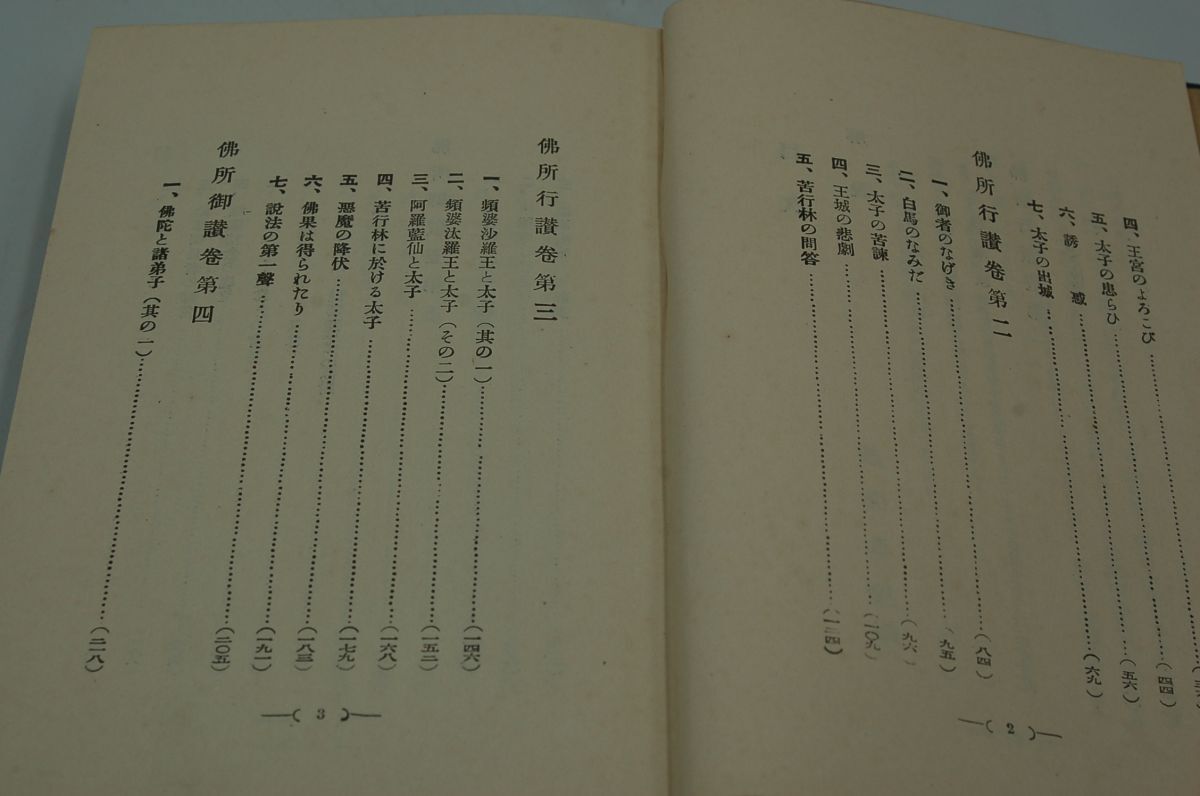 四、王宮のよろこび
五、太子の患らひ……(四四)
六、誘惑……(五六)
七、太子の出城……(六九)
佛所行讃卷第二
一、御者のなげき……(八四)
二、白馬のなみだ……(九五)
三、太子の苦諫……(九六)
四、王城の悲劇……(一〇九)
五、苦行林の問答……(一三四)
―( 2 )―
佛所行讃卷第三
一、頻婆沙羅王と太子(其の一)……(一四六)
二、頻婆汰羅王と太子(その二)……(一五二)
三、阿羅藍仙と太子……(一六八)
四、苦行林に於ける太子……(一七九)
五、惡魔の降伏……(一八三)
六、佛果は得られたり……(一九一)
七、說法の第一聲……(二〇五)
佛所御讃卷第四
一、佛陀と諸弟子(其の一)……(二一八)
―( 3 )―